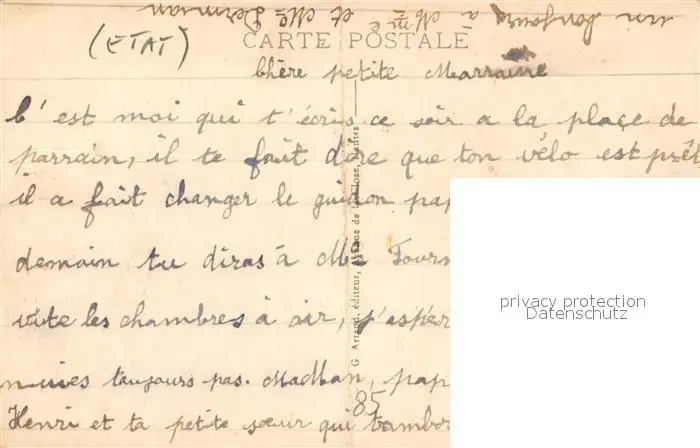 un bonjour à Mme et Mr
(ETAT)
CARTE POSTALE
Chère petite Marraine
C'est moi qui t'écris ce soir a la place de
parrain, il te fait dire que ton vélo est prêt
il a fait changer le guidon pap
demain tu diras à Mr Fourn
vite les chambres à air, j'espér
toujours pas. pap
Henri et ta petite sœur qui
G Artaud, éditeur, Nantes
85
privacy protection
Datenschutz